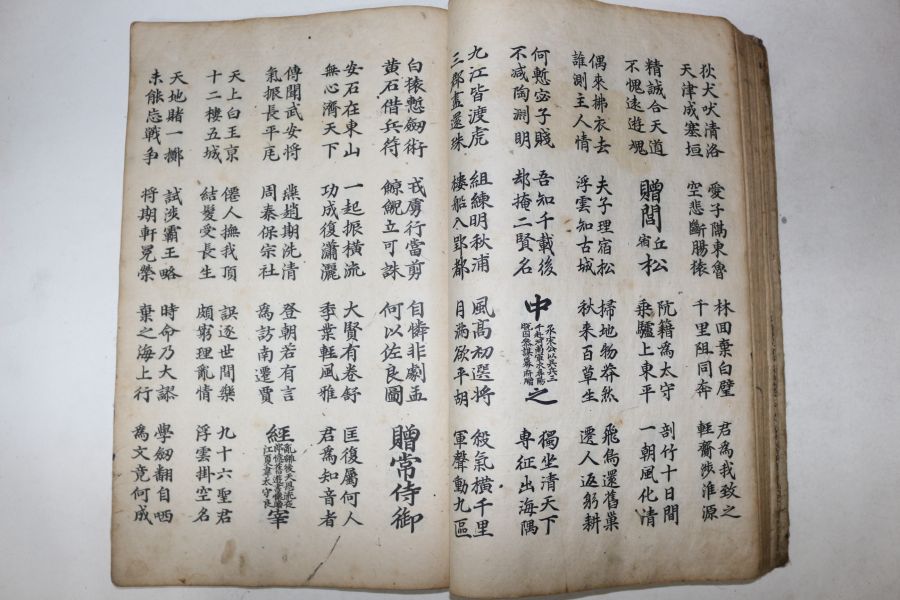 狄犬吠清洛
天津成塞垣
愛子隔東魯
空悲斷腸猿
林回棄白璧
千里阻同奔
君為我致之
輕齎涉淮源
精誠合天道
不愧遠遊魂
贈閭丘宿松
阮籍為太守
乘驢上東平
剖竹十日間
一朝風化清
偶來拂衣去
誰測主人情
夫子理宿松
浮雲知古城
掃地物莽然
秋來百草生
飛鳥還舊巢
遷人返躬耕
何慙宓子賤
不减陶淵明
吾知千載後
却掩二賢名
中丞宋公以吳兵三千赴河南軍次尋陽脫囚參謀幕府贈之
獨坐清天下
專征出海隅
九江皆渡虎
三郡盡還珠
組練明秋浦
樓船入郢都
風高初選將
月滿欲平胡
殺氣橫千里
軍聲動九區
白猿慙劒術
黃石借兵符
戎虜行當剪
鯨鯢立可誅
自憐非劇孟
何以佐良圖
贈常侍御
安石在東山
無心濟天下
一起振橫流
功成復瀟灑
大賢有卷舒
季葉輕風雅
匡復屬何人
君為知音者
傳聞武安將
氣振長平瓦
燕趙期洗清
周秦保宗社
登朝若有言
為訪南遷賈
經亂離後天恩流夜郎憶舊遊書懷贈江夏韋太守良宰
天上白玉京
十二樓五城
僊人撫我頂
結髮受長生
誤逐世間樂
頗窮理亂情
九十六聖君
浮雲掛空名
天地賭一擲
未能忘戰爭
試涉霸王略
將期軒冕榮
時命乃大謬
棄之海上行
學劒翻自哂
為文竟何成